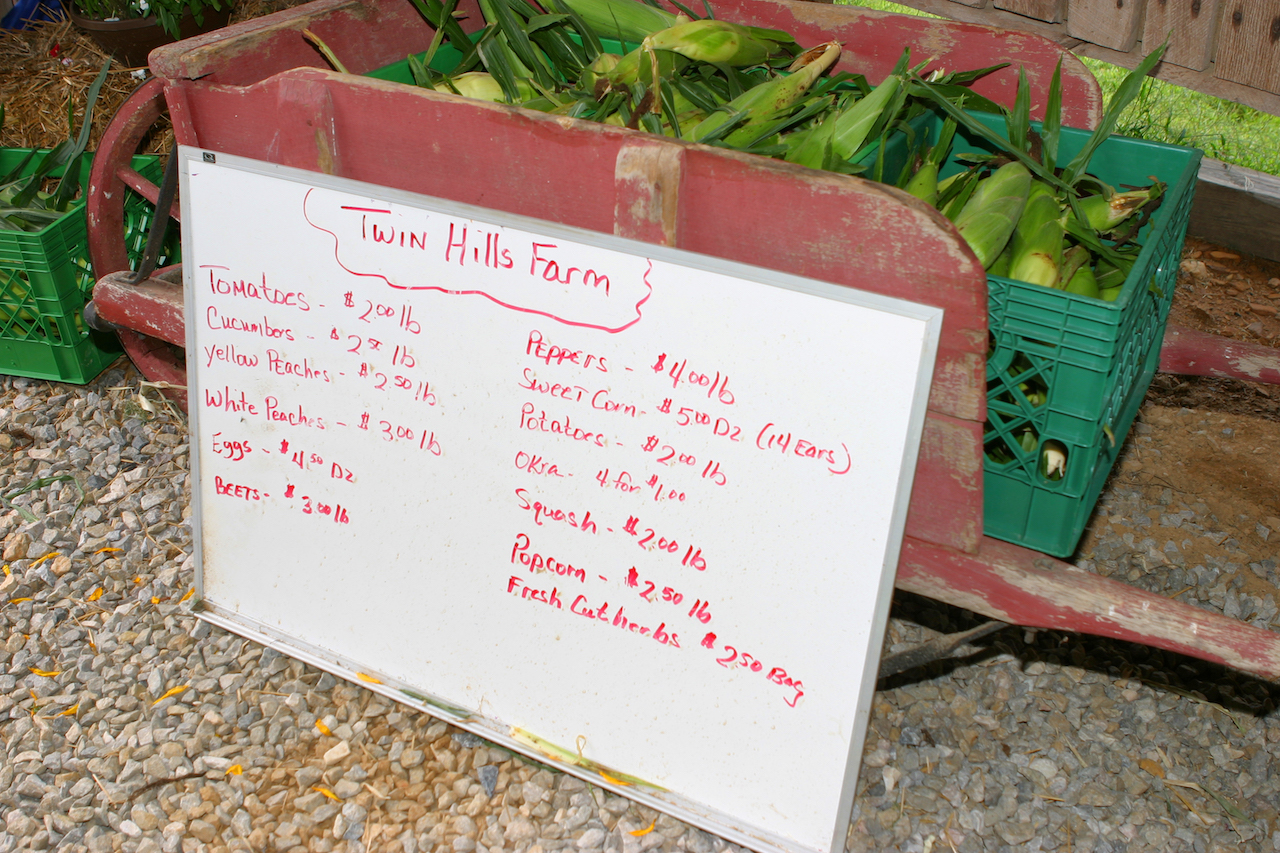 Twin Hills Farm
Tomatoes - $2.00 lb
Cucumbers - $2 lb
yellow Peaches - $2.50 lb
White Peaches - $3.00 lb
Eggs - $4.50 Dz
Beets - $3.00 lb
Peppers - $4.00 lb
Sweet Corn - $5.00 Dz (14 Ears)
Potatoes - $2.00 lb
Okra - 4 for $1.00
Squash - $2.00 lb
Popcorn - $2.50 lb
Fresh Cut herbs $2.50 Bag